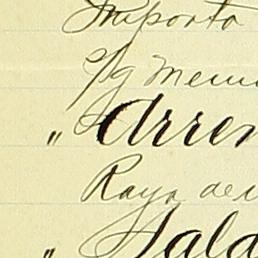 Importo
s/g memo
" Arren
Raya de
" Sald